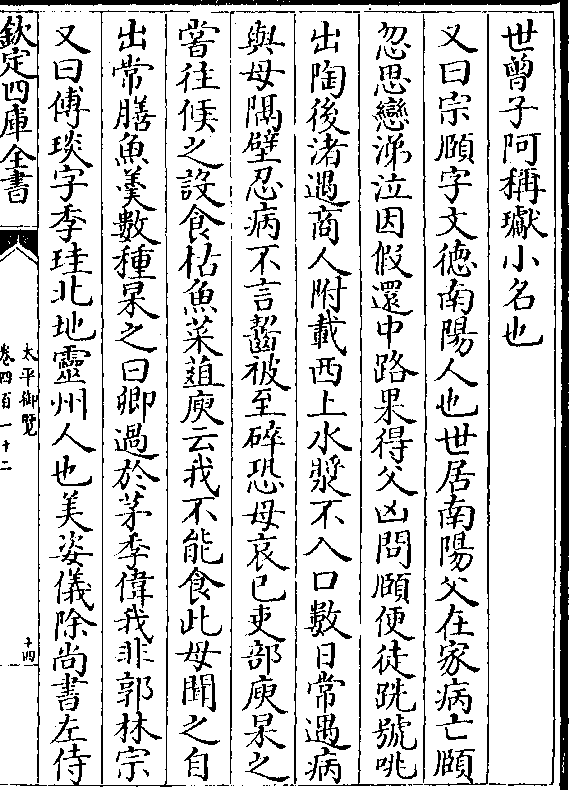 世曾子阿稱瓛小名也
又曰宗頋字文徳南陽人也世居南陽父在家病亡頋
忽思戀涕泣因假還中路果得父凶問頋便徒跣號咷
出陶後渚遇商人附載西上水漿不入口數日常遇病
與母隔壁忍病不言齧被至碎恐母哀已吏部庾杲之
甞往候之設食枯魚菜葅庾云我不能食此母聞之自
出常膳魚羮數種杲之曰卿過於茅季偉我非郭林宗
又曰傅琰字季珪北地靈州人也美姿儀除尚書左侍
欽定四庫全書
太平御覽
卷四百一十二
十四